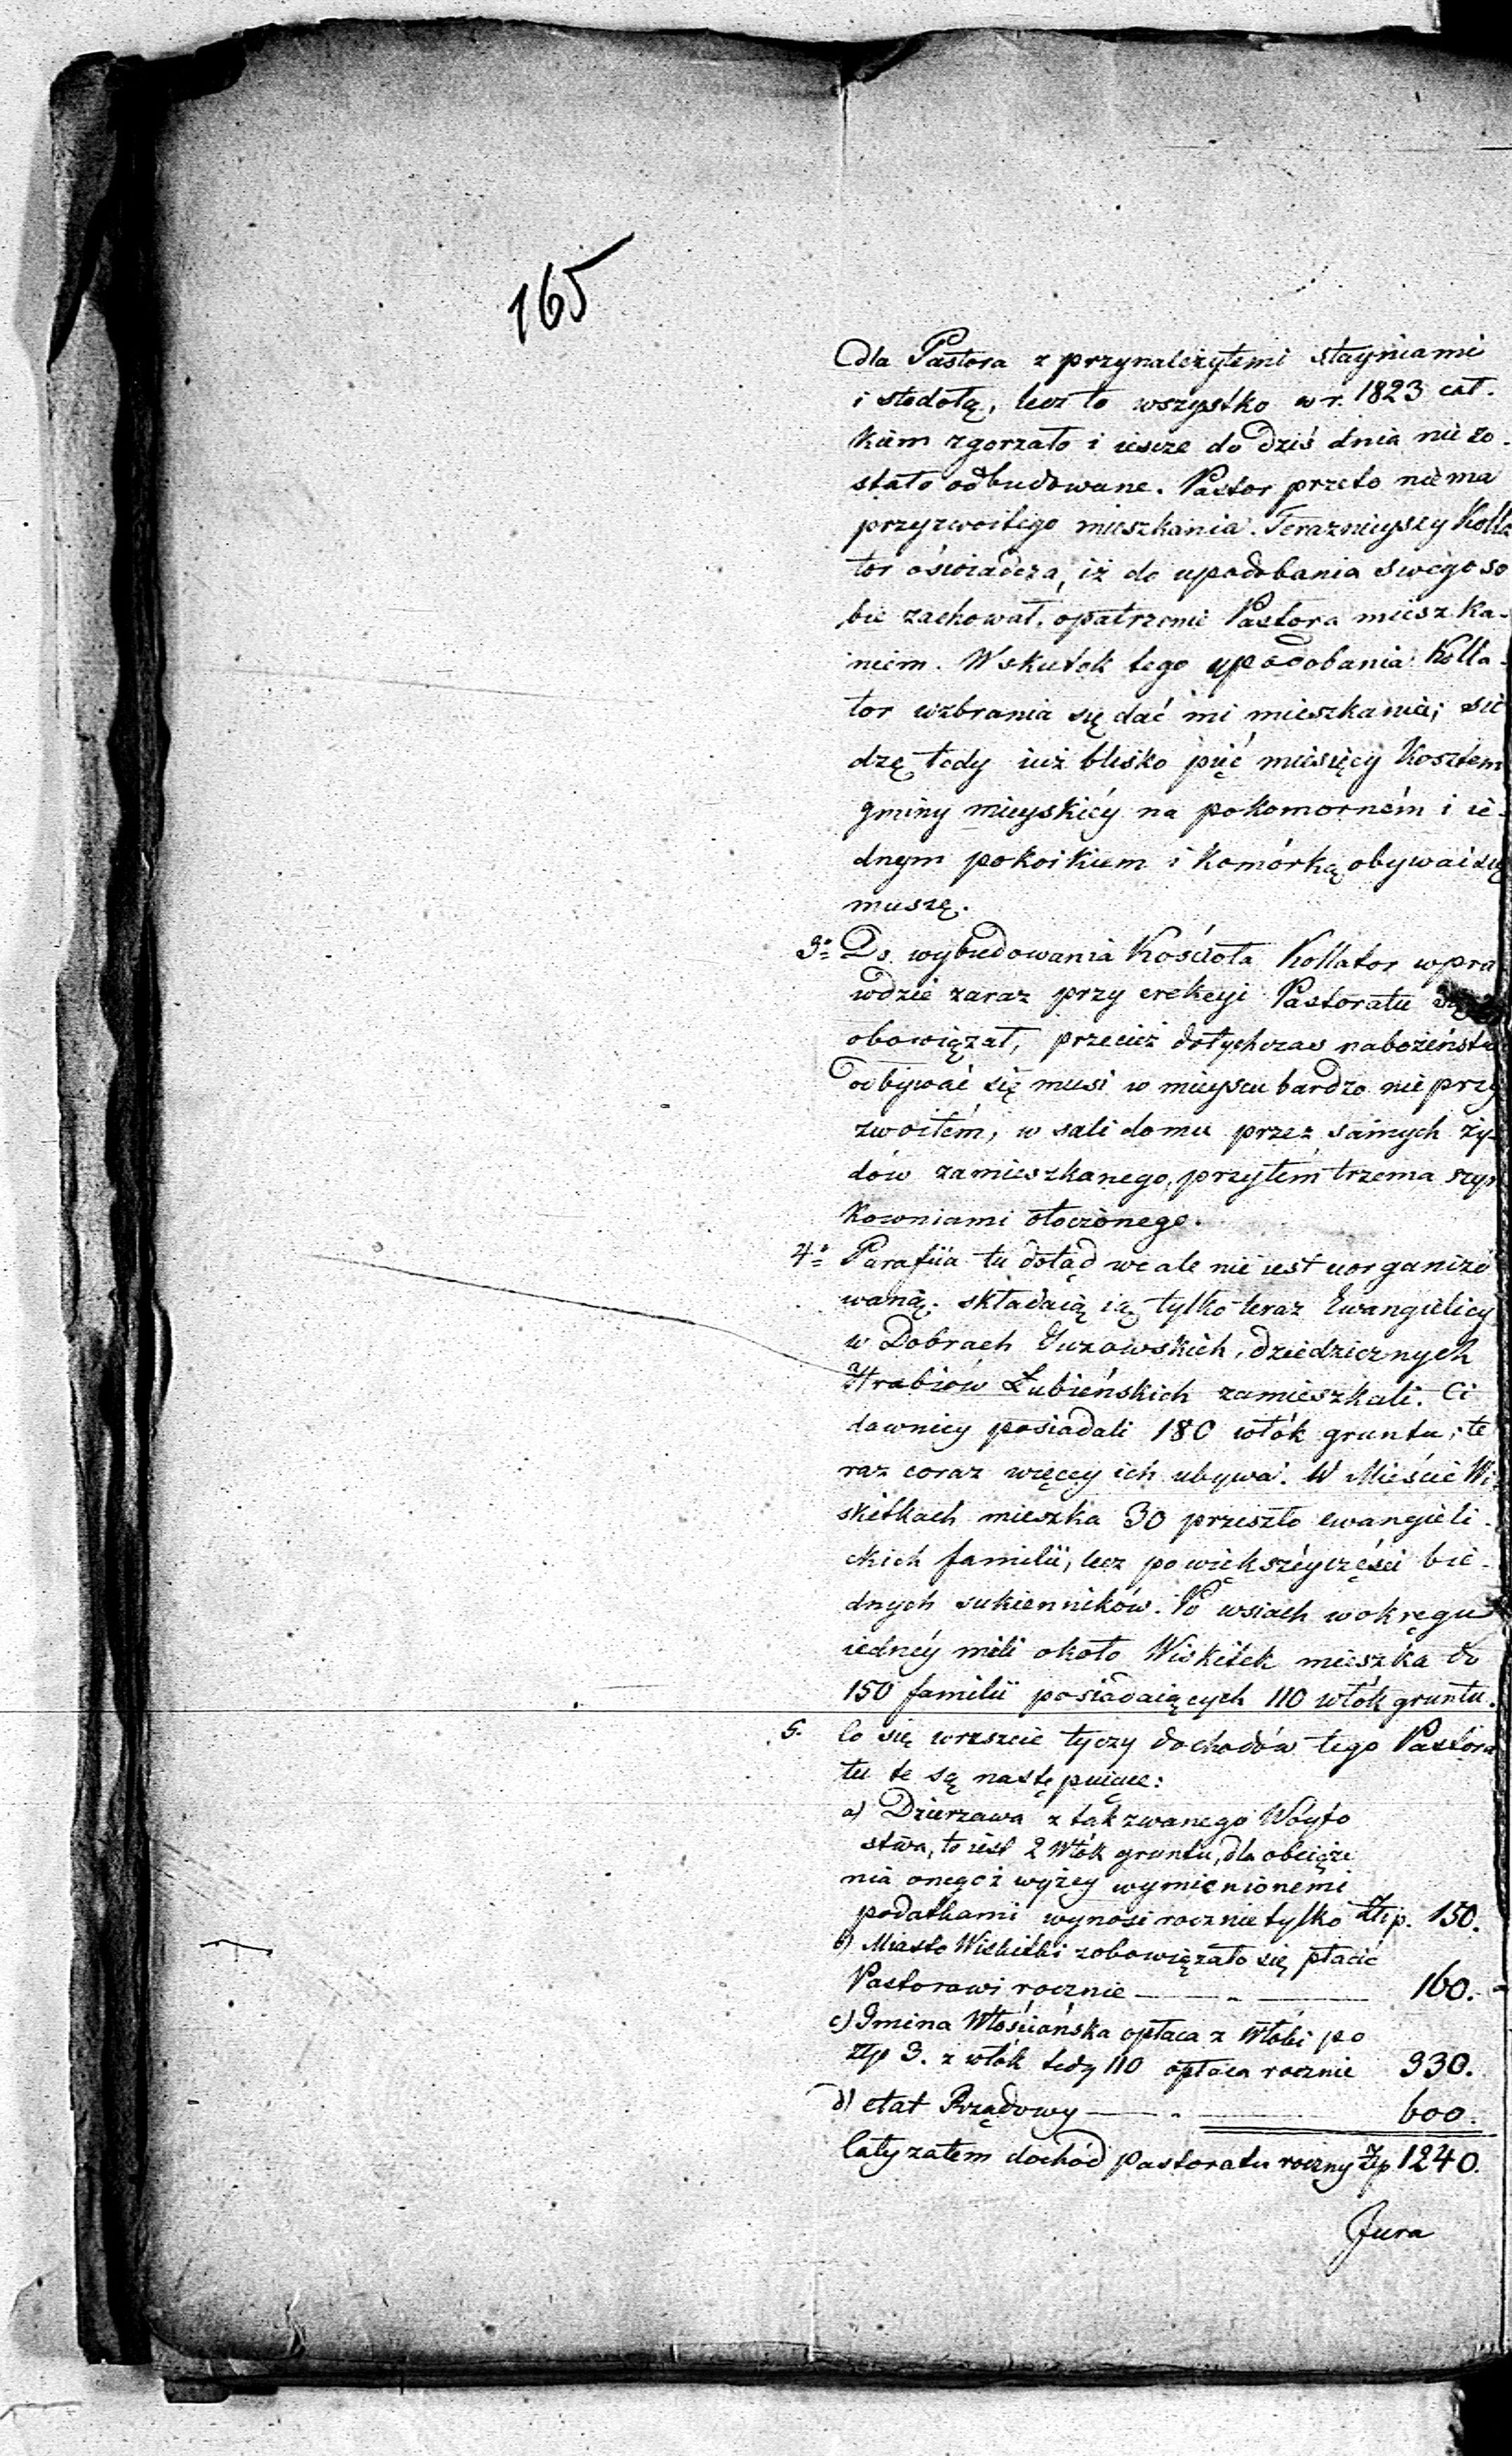 165
dla Pastora z przynależytemi stayniami
i stodołą, lecz to wszystko w r. 1823 cał-
kiem zgorzało i iescze do dziś dnia nie zo-
stało odbudowane. Pastor przeto niema
przyzwoitego mieszkania. Teraznieyszy Kolla
tor oświadcza, iż do upodobania swego so
bie zachował, opatrzenie Pastora mieszka-
niem. W skutek tego upodobania Kolla-
tor wzbrania się dać mi mieszkania; sie
dzę tedy iuż blisko pięć miesięcy kosztem
gminy mieyskiéy na pokomorném i ie-
dnym pokoikiem i komórką obywać się
muszę.
3o Do wybudowania Kościoła Kollator wpra
wdzie zaraz przy erekcyi Pastoratu się
obowiązał, przecież dotychczas nabożeństw
odbywać się musi w mieyscu bardzo nie przy
zwoitém, w sali domu przez samych ży-
dów zamieszkanego, przytém trzema szyn
kowniami otoczonego.
4o Parafiia tu dotąd wcale nie iest uorganizo
waną. składaią ią tylko teraz Ewangielicy
w Dobrach Guzowskich, dziedzicznych
Hrabiów Łubieńskich zamieszkali. Ci
dawniey posiadali 180 włók gruntu, te
raz coraz więcey ich ubywa. W Mieście Wi
skitkach mieszka 30 przeszło ewangieli-
ckich familii, lecz po większéy części bie-
dnych sukienników. Po wsiach w okręgu
iednéy mili około Wiskitek mieszka do
150 familii posiadaiących 110 włók gruntu.
5. Co się wreszcie tyczy dochodów tego Pastora
tu te są następuiące:
a) Dzierzawa z tak zwanego Wóyto
stwa, to iest 2 Włók gruntu, dla obciąże
nia onegoż wyżey wymienionemi
podatkami wynosi rocznie tylko Złp. 150.
b) Miasto Wiskitki zobowiązało się płacić
Pastorowi rocznie — „ — 160. -
c) Gmina Włościańska opłaca z Włóki po
złp 3. z włók tedy 110 opłaca rocznie 330.
d) etat Rządowy — „ — 600.
Cały zatem dochód Pastoratu roczny Złp 1240.
Jura